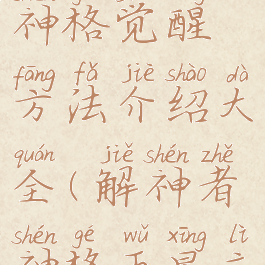 神格觉醒
fāng fǎ jiè shào dà
方法介绍大
quán jiě shén zhě
全(解神者
shén gé wǔ xīng lì
神格五星